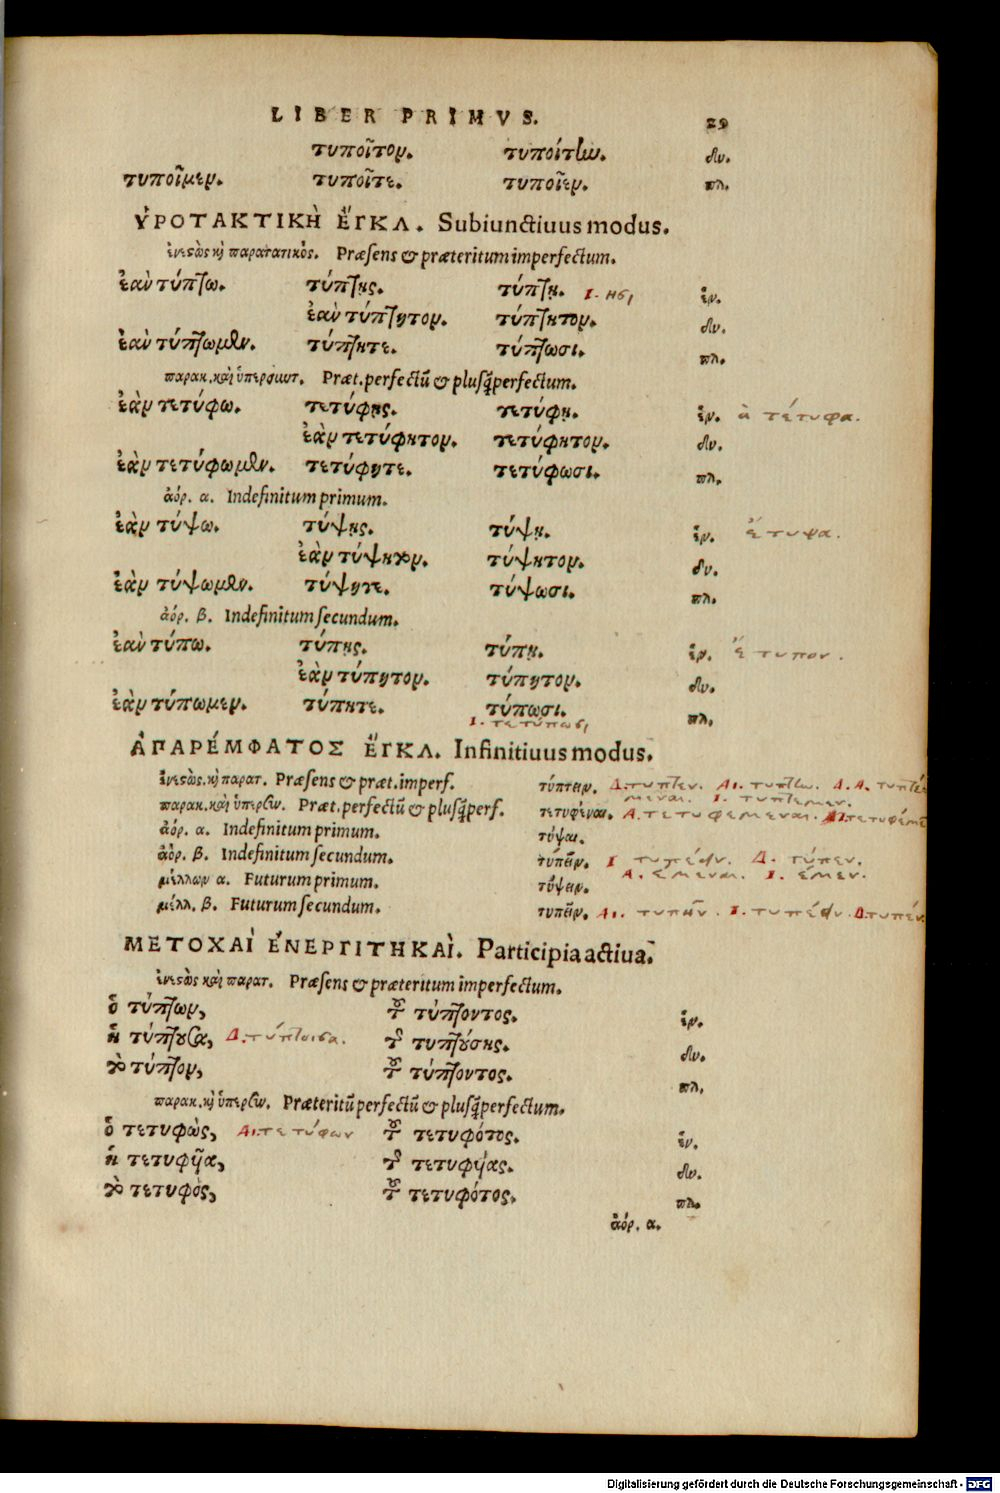 LIBER PRIMVS. 29
τυποῖτον. τυποίτων. δυ.
τυποῖμεν. τυποῖτε. τυποῖεν. πλ.
ὙΡΟΤΑΚΤΙΚῊ ἜΓΚΛ. Subiunctiuus modus.
ἐνεστὼς κὴ παρατατικός. Præsens & præteritum imperfectum.
ἐὰν τύπτω. τύπτῃς. τύπτῃ. I. ησι ἑν.
ἐὰν τύπτητον. τύπτητον. δυ.
ἐὰν τύπτωμεν. τύπτητε. τύπτωσι. πλ.
παρακ. καὶ ὑπερσυντ. Præt. perfectū & plusq̄perfectum.
ἐὰν τετύφω. τετύφῃς. τετύφῃ. ἑν. ἀ τέτυφα.
ἐὰν τετύφητον. τετύφητον. δυ.
ἐὰν τετύφωμεν. τετύφητε. τετύφωσι. πλ.
ἀόρ. α. Indefinitum primum.
ἐὰν τύψω. τύψῃς. τύψῃ. ἑν. ἔτυψα.
ἐὰν τύψητον. τύψητον. δυ.
ἐὰν τύψωμεν. τύψητε. τύψωσι. πλ.
ἀόρ. β. Indefinitum secundum.
ἐὰν τύπω. τύπῃς. τύπῃ. ἑν. ἔτυπον.
ἐὰν τύπητον. τύπητον. δυ.
ἐὰν τύπωμεν. τύπητε. τύπωσι. πλ.
I. τετύπωσι
ἈΠΑΡΈΜΦΑΤΟΣ ἜΓΚΛ. Infinitiuus modus.
ἐνεστὼς. κὴ παρατ. Præsens & præt. imperf. τύπτειν. Δ. τυπτεν. Αι. τυπτω. Δ. Α. τυπτέ
μεναι. I. τυπτεμεν.
παρακ. καὶ ὑπερσυν. Præt. perfectū & plusq̄perf. τετυφέναι. Α. τετυφεμεναι. τετυφέμε
ἀόρ. α. Indefinitum primum. τύψαι.
ἀόρ. β. Indefinitum secundum. τυπεῖν. I τυπέειν. Δ. τύπεν.
Α. έμεναι. I. έμεν.
μέλλων α. Futurum primum. τύψειν.
μέλλ. β. Futurum secundum. τυπεῖν. Αι. τυπῆν. I. τυπέειν. Δ. τυπέν.
ΜΕΤΟΧΑῚ ἘΝΕΡΓΙΤΗΚΑῚ. Participia actiua.
ἐνεστὼς καὶ παρατ. Præsens & præteritum imperfectum.
ὁ τύπτων, τοῦ τύπτοντος. ἑν.
ἡ τύπτουσα, Δ. τύπτοισα. τῆς τυπτούσης. δυ.
τὸ τύπτον, τοῦ τύπτοντος. πλ.
παρακ. κὴ ὑπερσυν. Præteritū perfectū & plusq̄perfectum.
ὁ τετυφὼς, Αι. τετύφων τοῦ τετυφότος. ἑν.
ἡ τετυφῆα, τῆς τετυφήας. δυ.
τὸ τετυφὸς, τοῦ τετυφότος. πλ.
ἀόρ. α.
Digitalisierung gefördert durch die Deutsche Forschungsgemeinschaft - DFG